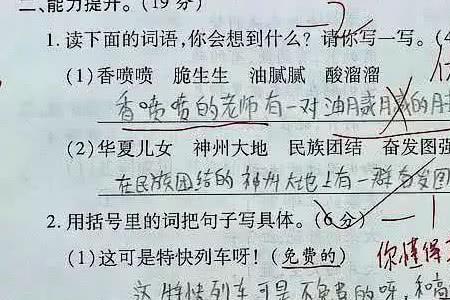 二、能力提升。(19分)
1. 读下面的词语,你会想到什么?请你写一写。(4
(1)香喷喷 脆生生 油腻腻 酸溜溜
香喷喷的老师有一对油
(2)华夏儿女 神州大地 民族团结 奋发图强
在民族团结的神州大地上有一群奋发图
2. 用括号里的词把句子写具体。(6分) -1
(1)这可是特快列车呀!(免费的) 你懂得
这特快列车可是不免费的呀,和高